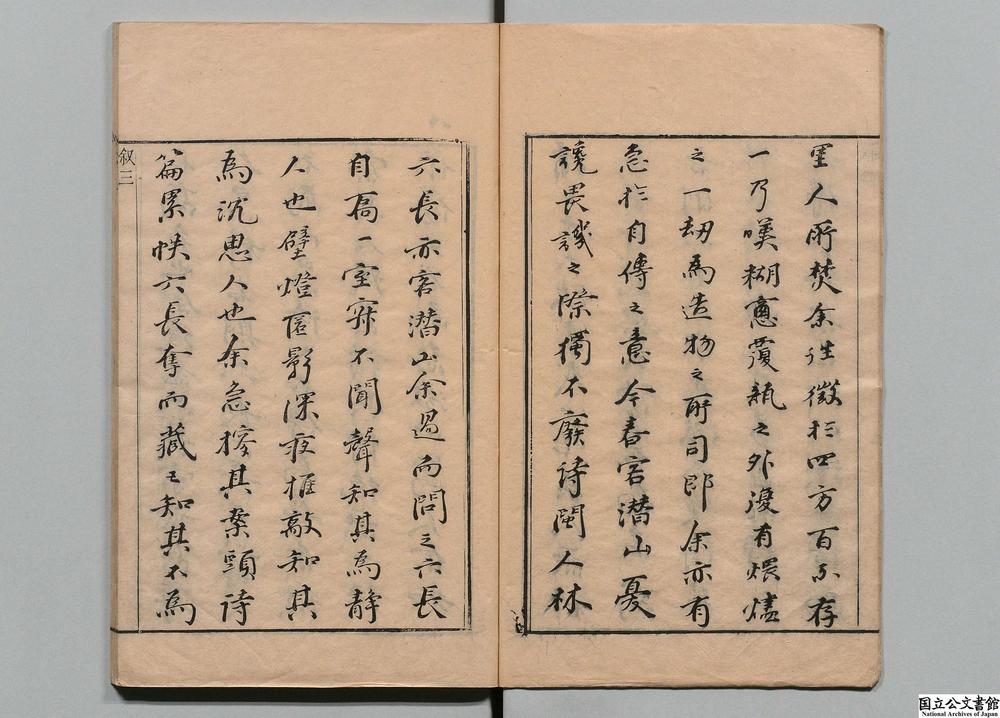 里人所焚余徃徵於四方百不存
一乃嘆糊䆫覆瓿之外復有煨燼
之一刼為造物之所司即余亦有
急於自傳之意今春客潜山憂
讒畏譏之際獨不廢诗閩人林
六長亦客潜山余過而問之六長
自扃一室寂不聞聲知其為静
人也壁燈匿影深夜推敲知其
為沉思人也余急搜其案頭诗
篇累帙六長奪而藏之知其不為
叙三
国立公文書館
National Archives of Japan